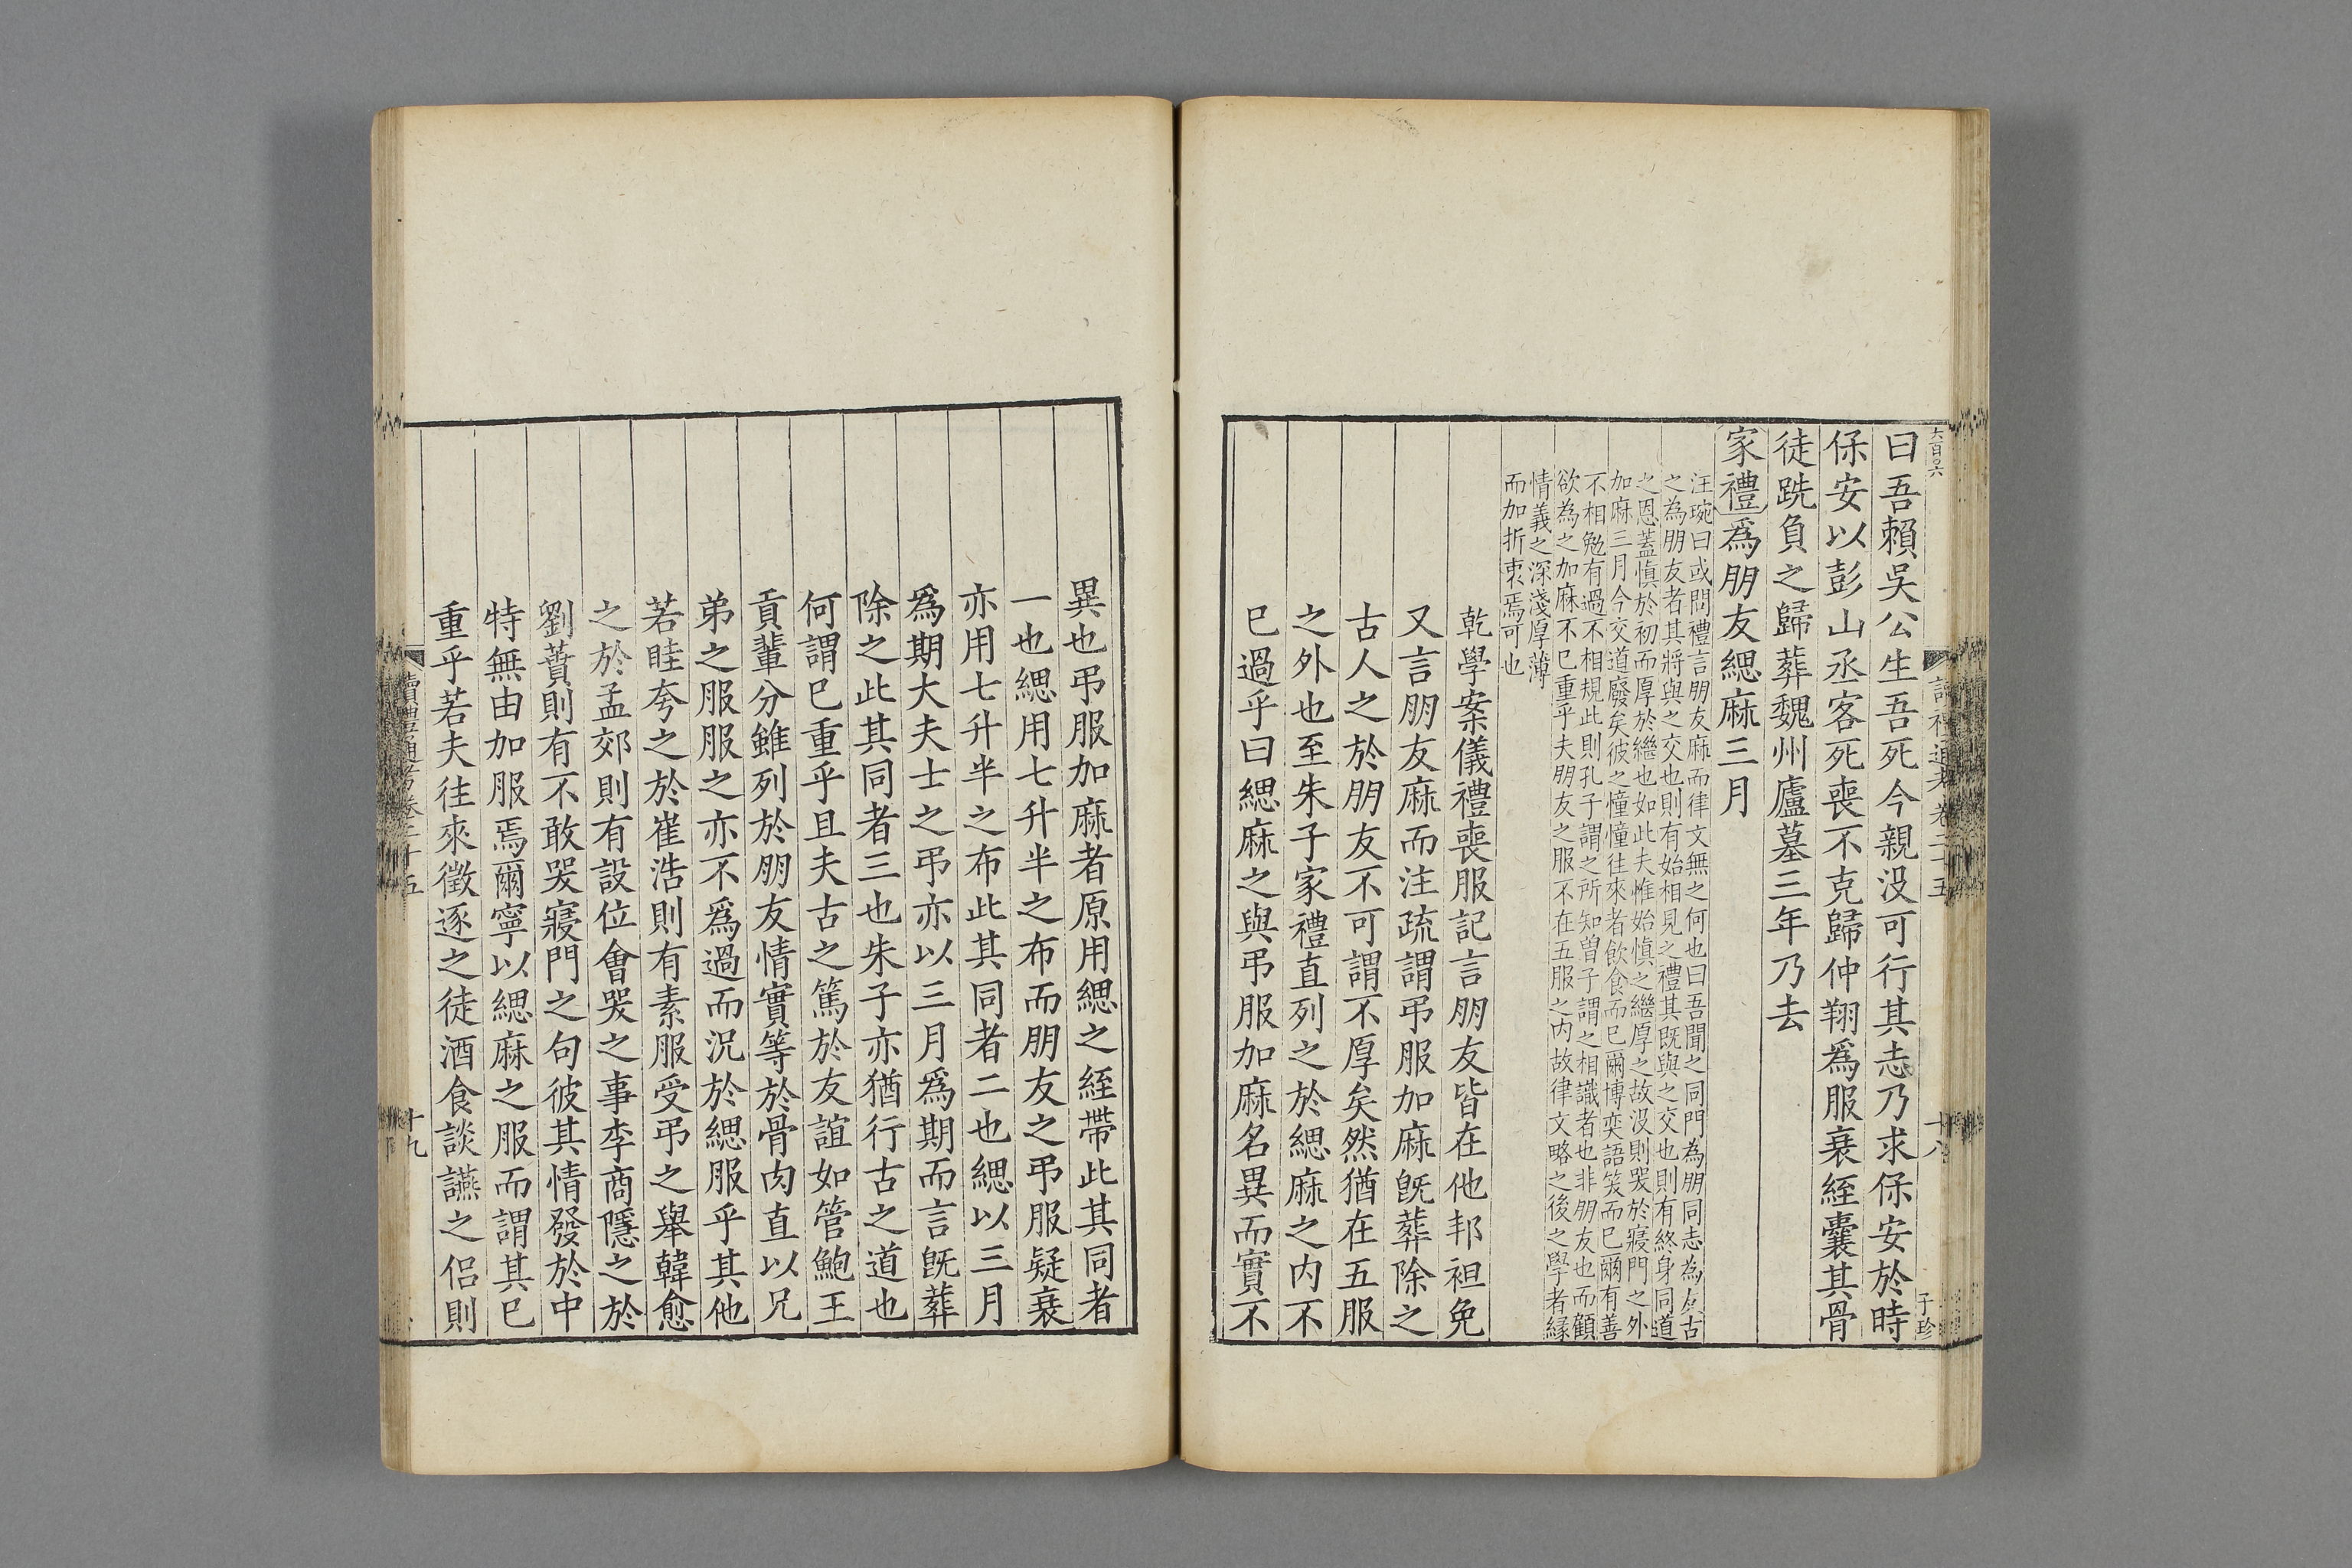 六百六
讀禮通考卷二十五
十八
子珍
曰吾賴吳公生吾死今親没可行其志乃求保安於時
保安以彭山丞客死喪不克歸仲翔爲服衰絰囊其骨
徒跣負之歸葬魏州廬墓三年乃去
家禮爲朋友緦麻三月
汪琬曰或問禮言朋友麻而律文無之何也曰吾聞之同門為朋同志為友古
之為朋友者其將與之交也則有始相見之禮其既與之交也則有終身同道
之恩蓋慎於初而厚於繼也如此夫惟始慎之繼厚之故没則哭於寢門之外
加麻三月今交道廢矣彼之憧憧往來者飲食而已爾博奕語笑而已爾有善
不相勉有過不相規此則孔子謂之所知曽子謂之相識者也非朋友也而顧
欲為之加麻不已重乎夫朋友之服不在五服之内故律文略之後之學者緣
情義之深淺厚薄
而加折衷焉可也
乾學案儀禮喪服記言朋友皆在他邦袒免
又言朋友麻而注疏謂弔服加麻旣葬除之
古人之於朋友不可謂不厚矣然猶在五服
之外也至朱子家禮直列之於緦麻之内不
已過乎曰緦麻之與弔服加麻名異而實不
異也弔服加麻者原用緦之絰帶此其同者
一也緦用七升半之布而朋友之弔服疑衰
亦用七升半之布此其同者二也緦以三月
爲期大夫士之弔亦以三月爲期而言旣葬
除之此其同者三也朱子亦猶行古之道也
何謂已重乎且夫古之篤於友誼如管鮑王
貢輩分雖列於朋友情實等於骨肉直以兄
弟之服服之亦不爲過而況於緦服乎其他
若眭夸之於崔浩則有素服受弔之舉韓愈
之於孟郊則有設位會哭之事李商隱之於
劉蕡則有不敢哭寢門之句彼其情發於中
特無由加服焉爾寧以緦麻之服而謂其已
重乎若夫往來徵逐之徒酒食談讌之侣則
讀禮通考卷二十五
十九